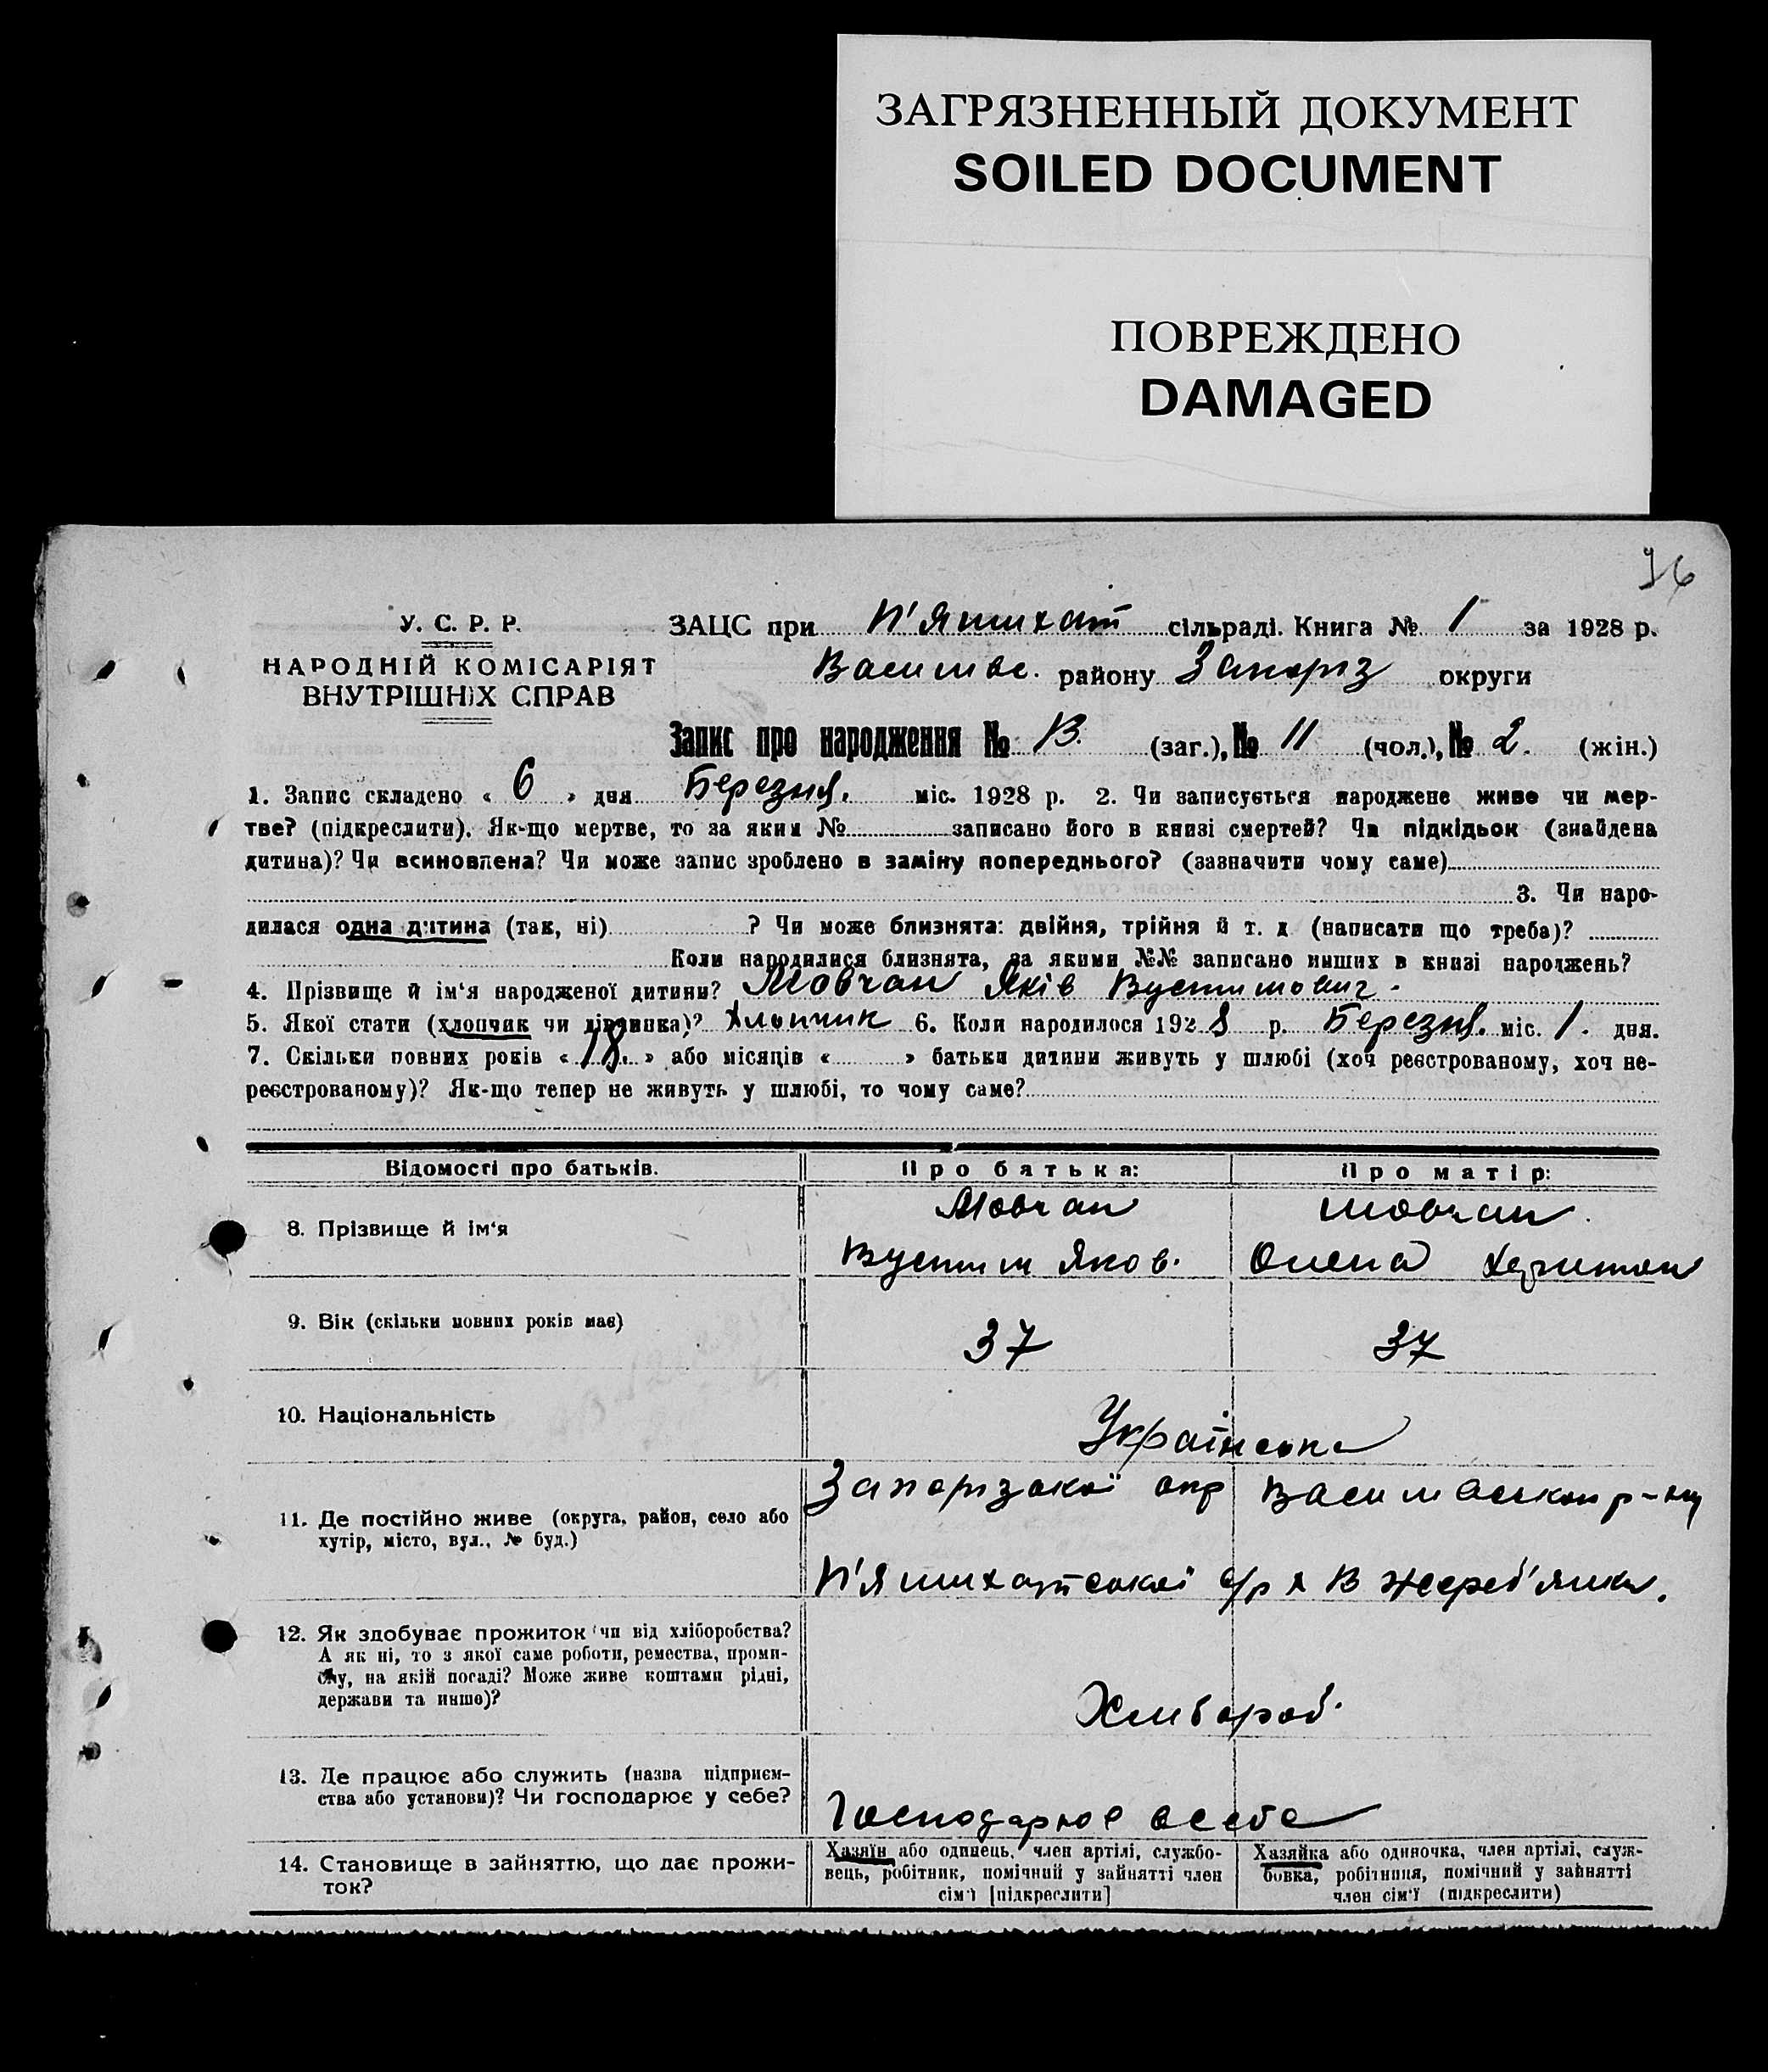 ЗАГРЯЗНЕННЫЙ ДОКУМЕНТ
SOILED DOCUMENT
ПОВРЕЖДЕНО
DAMAGED
96
У. С. Р. Р.
НАРОДНІЙ КОМІСАРІЯТ
ВНУТРІШНІХ СПРАВ
ЗАЦС при П'ятихат сільраді. Книга № 1 за 1928 р.
Василівс. району Запоріз округи
Запис про народження № 13. (заг.), № 11 (чол.), № 2. (жін.)
1. Запис складено « 6 » дня Березня. міс. 1928 р. 2. Чи записується народжене живе чи мер-
тве? (підкреслити). Як-що мертве, то за яким № записано його в книзі смертей? Чи підкідьок (знайдена
дитина)? Чи всиновлена? Чи може запис зроблено в заміну попереднього? (зазначити чому саме)
3. Чи наро-
дилася одна дитина (так, ні) ? Чи може близнята: двійня, трійня й т. д (написати що треба)?
Коли народилися близнята, за якими №№ записано инших в книзі народжень?
4. Прізвище й ім'я народженої дитини? Мовчан Яків Вустимович.
5. Якої стати (хлопчик чи дівчинка)? Хлопчик 6. Коли народилося 1928 р. Березня. міс. 1. дня.
7. Скільки повних років « 18. » або місяців « » батьки дитини живуть у шлюбі (хоч реєстрованому, хоч не-
реєстрованому)? Як-що тепер не живуть у шлюбі, то чому саме?
Відомості про батьків. Про батька: Про матір:
8. Прізвище й ім'я Мовчан Мовчан.
Вустим Яков. Олена Харитон
9. Вік (скільки повних років має) 37 37
10. Національність Українська
11. Де постійно живе (округа, район, село або
хутір, місто, вул., № буд.)
Запорізської окр Василівськой р-ну
П'ятихатської с/р х В Жереб'янка.
12. Як здобуває прожиток чи від хліборобства?
А як ні, то з якої саме роботи, ремества, проми-
слу, на якій посаді? Може живе коштами рідні,
держави та инше)?
Хлібороб.
13. Де працює або служить (назва підприєм-
ства або установи)? Чи господарює у себе?
Господарює в себе
14. Становище в зайняттю, що дає прожи-
ток?
Хазяїн або одинець, член артілі, службо-
вець, робітник, помічний у зайнятті член
сім'ї [підкреслити]
Хазяйка або одиночка, член артілі, служ-
бовка, робітниця, помічний у зайнятті
член сім'ї (підкреслити)